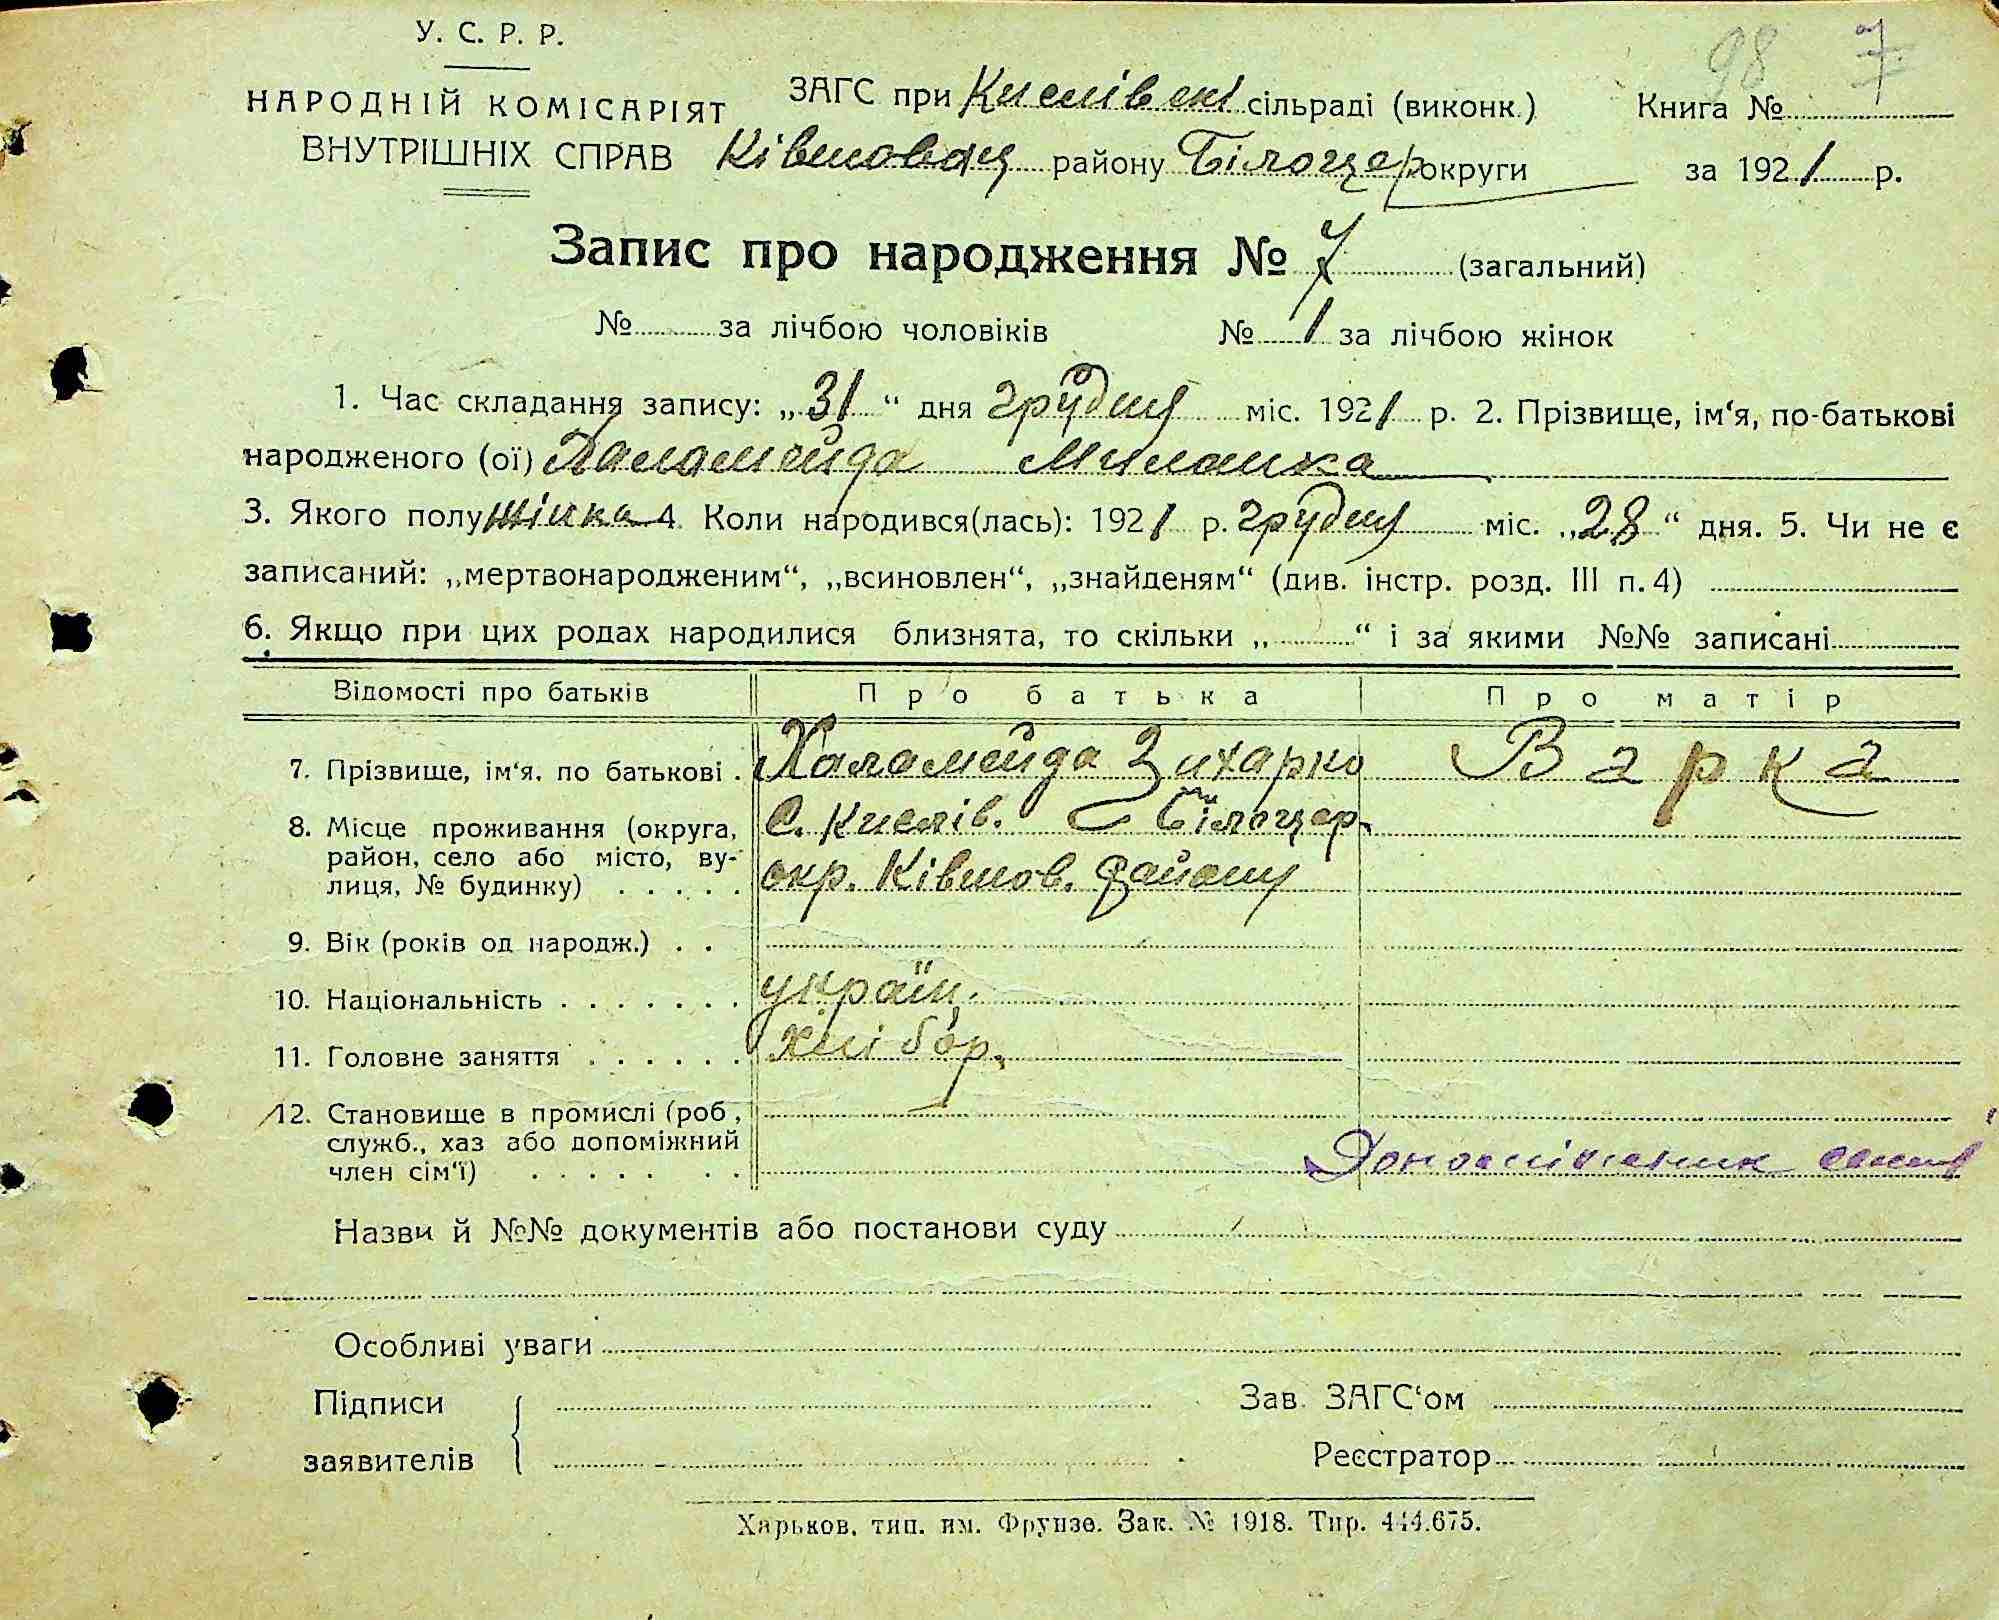 98 7
У. С. Р. Р.
НАРОДНІЙ КОМІСАРІЯТ
ВНУТРІШНІХ СПРАВ
ЗАГС при Кислівскі сільраді (виконк.)
Ківшовац району Білоцер округи
Книга №
за 1921 р.
Запис про народження № 7 (загальний)
№ за лічбою чоловіків № 1 за лічбою жінок
1. Час складання запису: „31“ дня грудня міс. 1921 р. 2. Прізвище, ім‘я, по-батькові
народженого (ої) Халамейда Милашка
3. Якого полу жінка 4. Коли народився(лась): 1921 р. грудня міс. „28“ дня. 5. Чи не є
записаний: „мертвонародженим“, „всиновлен“, „знайденям“ (див. інстр. розд. III п. 4)
6. Якщо при цих родах народилися близнята, то скільки „ “ і за якими №№ записані
Відомості про батьків Про батька Про матір
7. Прізвище, ім‘я. по батькові . Халамейда Зихарко Варка
8. Місце проживання (округа, С. Кислів. Білоцер.
район, село або місто, ву-
лиця, № будинку) . . . . . окр. Ківшов. району
9. Вік (років од народж.) . .
10. Національність . . . . . . . україн.
11. Головне заняття . . . . . . хлібор.
12. Становище в промислі (роб,
служб., хаз або допоміжний
член сім‘ї) . . . . . . .
Назви й №№ документів або постанови суду
Особливі уваги
Підписи
заявителів
Зав. ЗАГС‘ом
Реєстратор
Харьков, тип. им. Фрунзе. Зак. № 1918. Тир. 444.675.